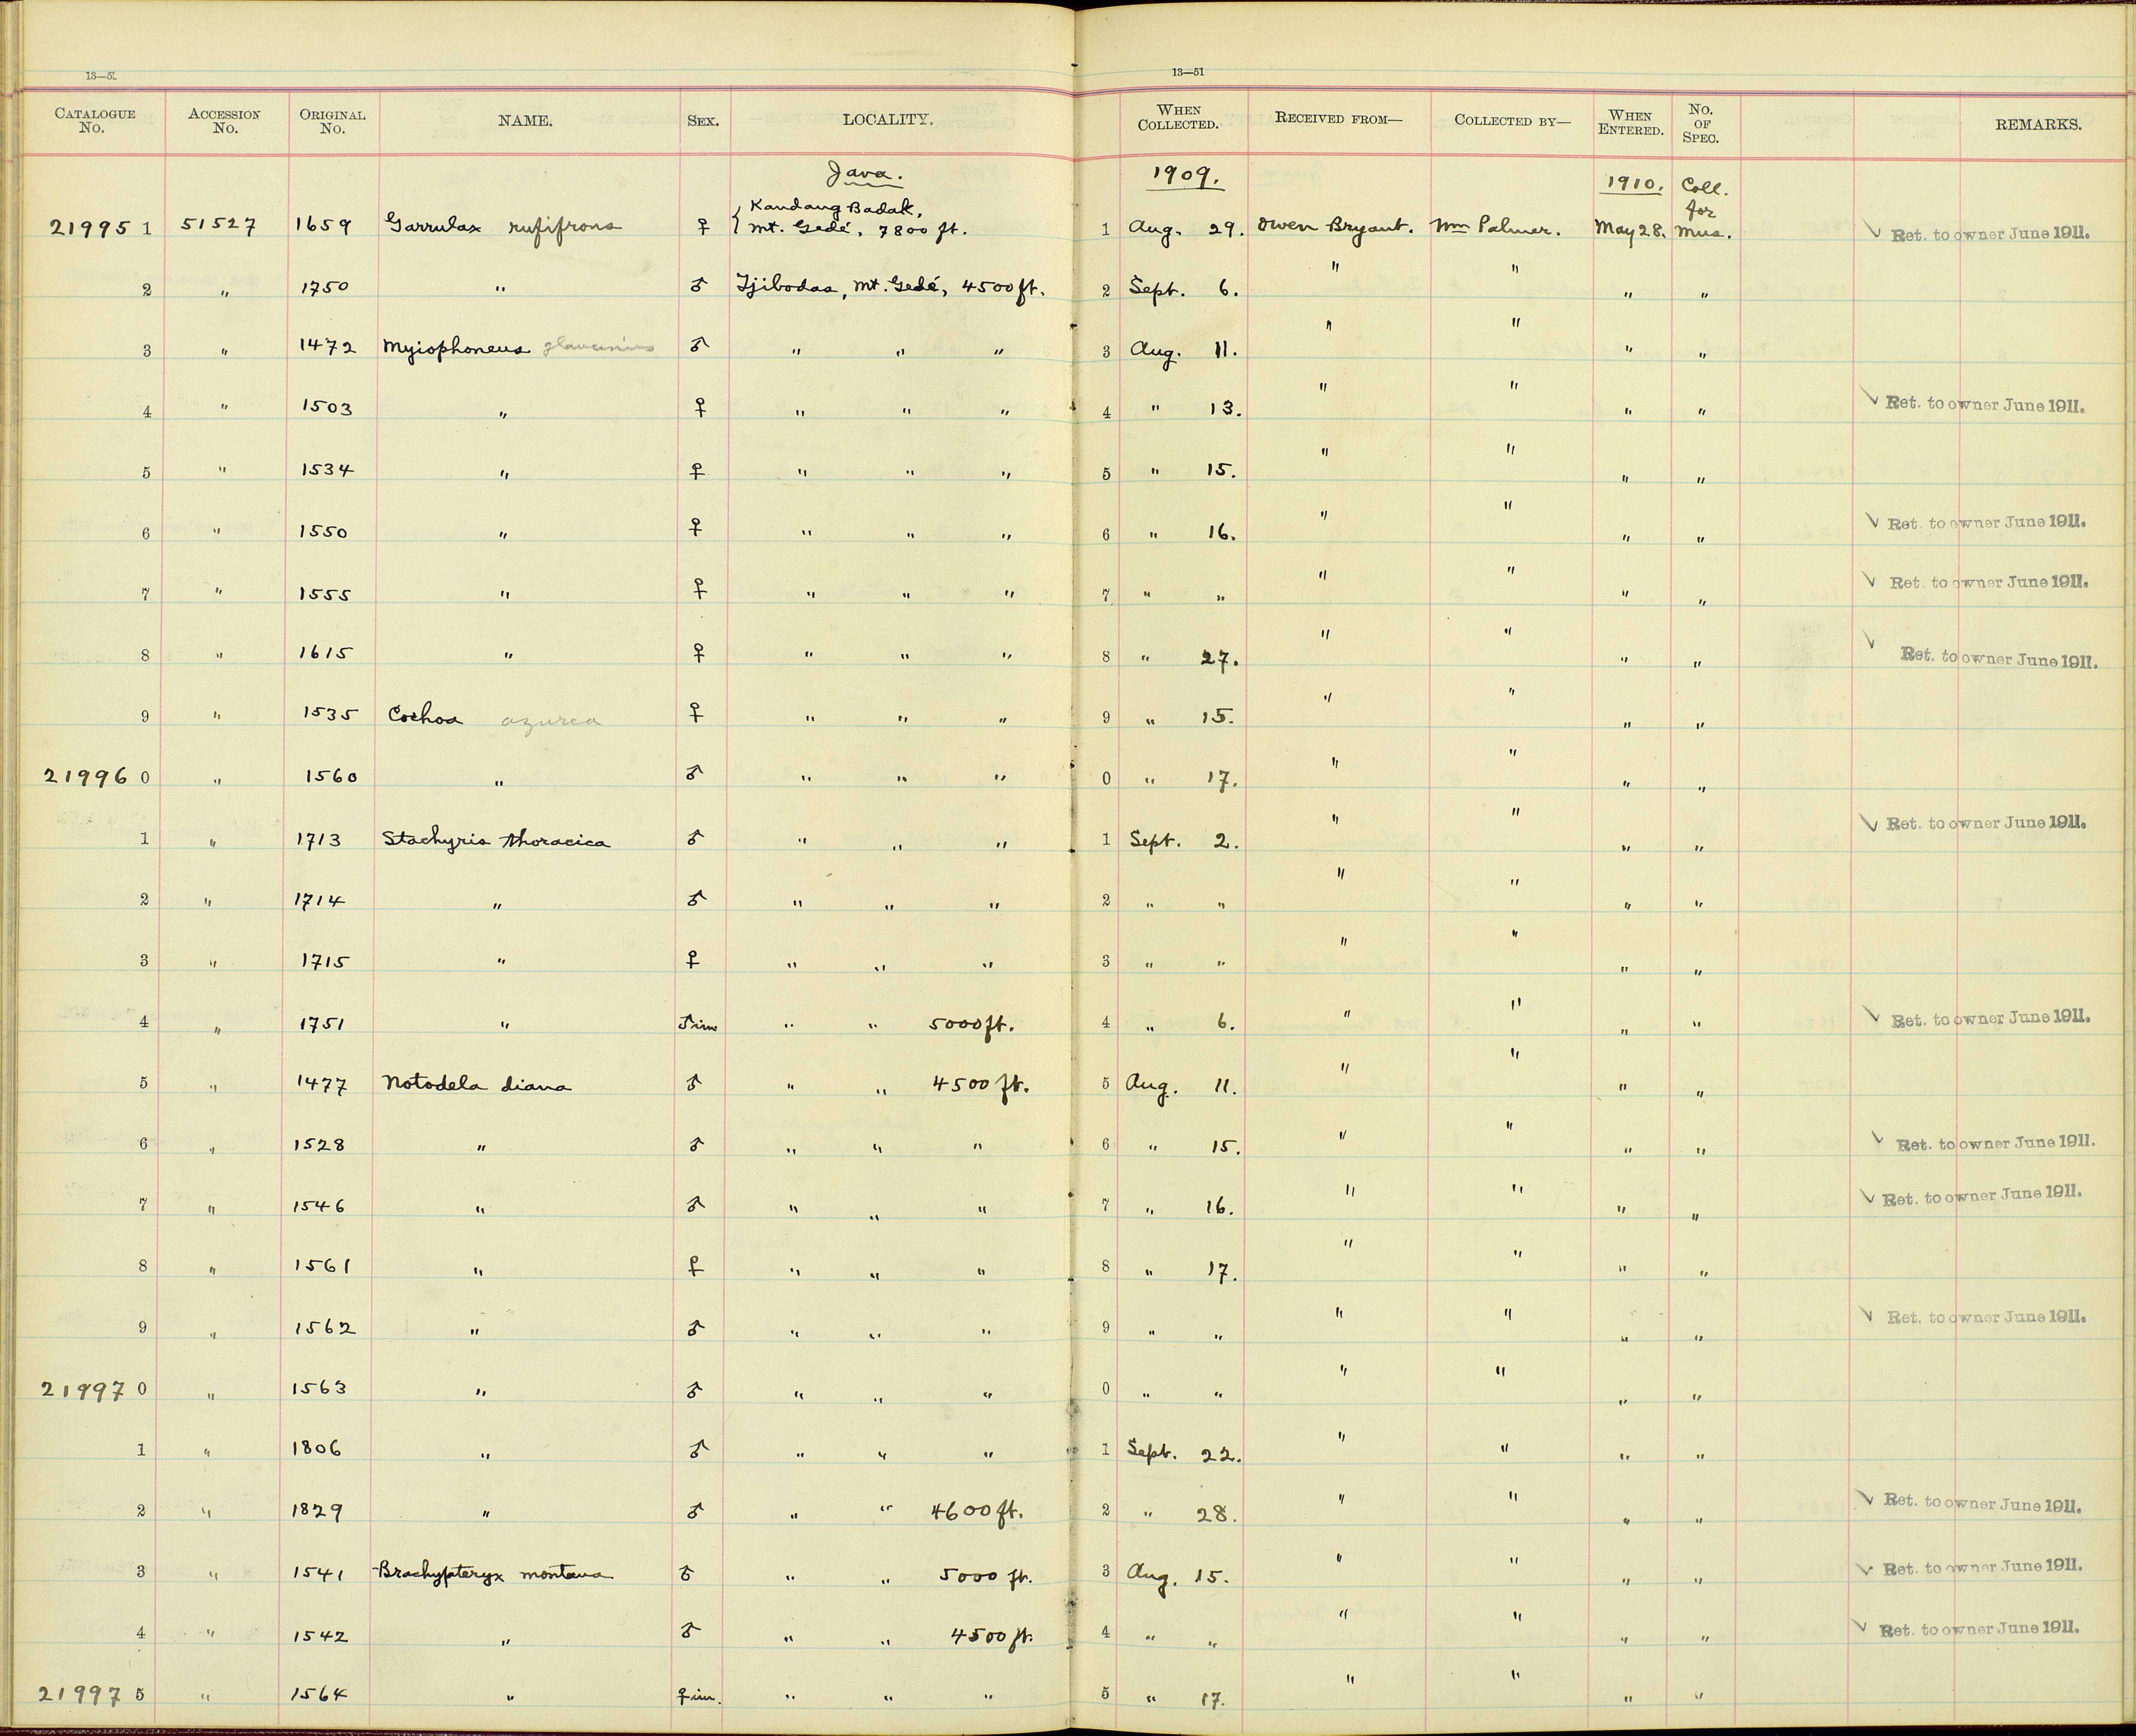 13—51
13—51
CATALOGUE No. ACCESSION No. ORIGINAL No. NAME. SEX. LOCALITY. WHEN COLLECTED. RECEIVED FROM— COLLECTED BY— WHEN ENTERED. NO. OF SPEC. REMARKS.
Java. 1909. 1910. Coll. for
21995 1 51527 1659 Garrulax rufifrons ♀ { Kandang Badak, Mt. Gedé, 7800 ft. 1 Aug. 29. Owen Bryant. Wm Palmer. May 28. Mus. √ Ret. to owner June 1911.
2 " 1750 " ♂ Tjibodas, Mt. Gedé, 4500 ft. 2 Sept. 6. " " " "
3 " 1472 Myiophoneus glaucinus ♂ " " " 3 Aug. 11. " " " "
4 " 1503 " ♀ " " " 4 " 13. " " " " √ Ret. to owner June 1911.
5 " 1534 " ♀ " " " 5 " 15. " " " "
6 " 1550 " ♀ " " " 6 " 16. " " " " √ Ret. to owner June 1911.
7 " 1555 " ♀ " " " 7 " " " " " " √ Ret. to owner June 1911.
8 " 1615 " ♀ " " " 8 " 27. " " " " √ Ret. to owner June 1911.
9 " 1535 Cochoa azurea ♀ " " " 9 " 15. " " " "
21996 0 " 1560 " ♂ " " " 0 " 17. " " " "
1 " 1713 Stachyris thoracica ♂ " " " 1 Sept. 2. " " " " √ Ret. to owner June 1911.
2 " 1714 " ♂ " " " 2 " " " " " "
3 " 1715 " ♀ " " " 3 " " " " " "
4 " 1751 " ♂ im " " 5000 ft. 4 " 6. " " " " √ Ret. to owner June 1911.
5 " 1477 Notodela diana ♂ " " 4500 ft. 5 Aug. 11. " " " "
6 " 1528 " ♂ " " " 6 " 15. " " " " √ Ret. to owner June 1911.
7 " 1546 " ♂ " " " 7 " 16. " " " " √ Ret. to owner June 1911.
8 " 1561 " ♀ " " " 8 " 17. " " " "
9 " 1562 " ♂ " " " 9 " " " " " " √ Ret. to owner June 1911.
21997 0 " 1563 " ♂ " " " 0 " " " " " "
1 " 1806 " ♂ " " " 1 Sept. 22. " " " "
2 " 1829 " ♂ " " 4600 ft. 2 " 28. " " " " √ Ret. to owner June 1911.
3 " 1541 Brachypteryx montana ♂ " " 5000 ft. 3 Aug. 15. " " " " √ Ret. to owner June 1911.
4 " 1542 " ♂ " " 4500 ft. 4 " " " " " " √ Ret. to owner June 1911.
21997 5 " 1564 " ♀ im. " " " 5 " 17. " " " "